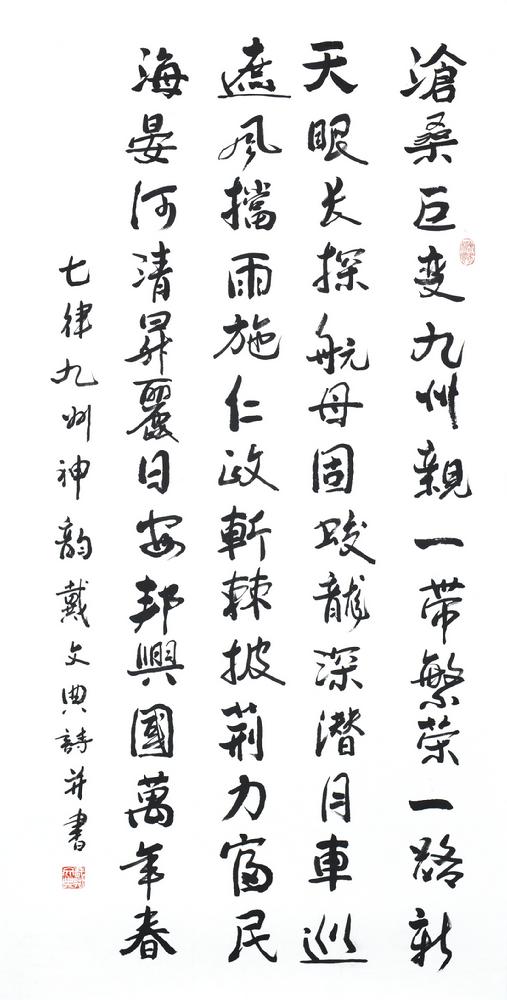 滄桑巨变九州親一带繁荣一路新
天眼长探航母固蛟龍深潜月車巡
遮风擋雨施仁政斬棘披荊力富民
海晏河清昇麗日安邦興國萬年春
七律九州神韵戴文典詩并書